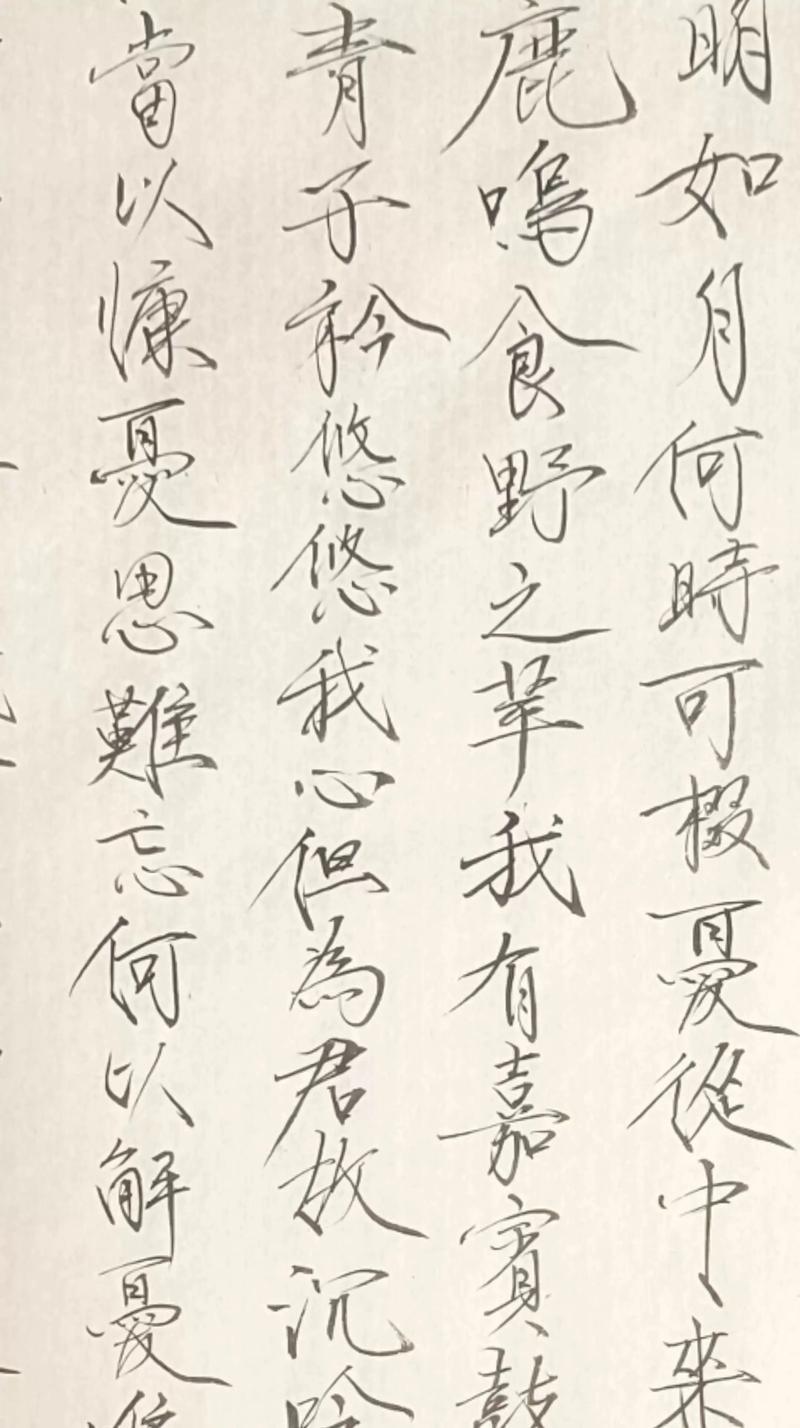 當以慷憂思難忘何以解憂
青子衿悠悠我心但為君故沉吟
鹿鳴食野之苹我有嘉賓鼓
明如月何時可掇憂從中來